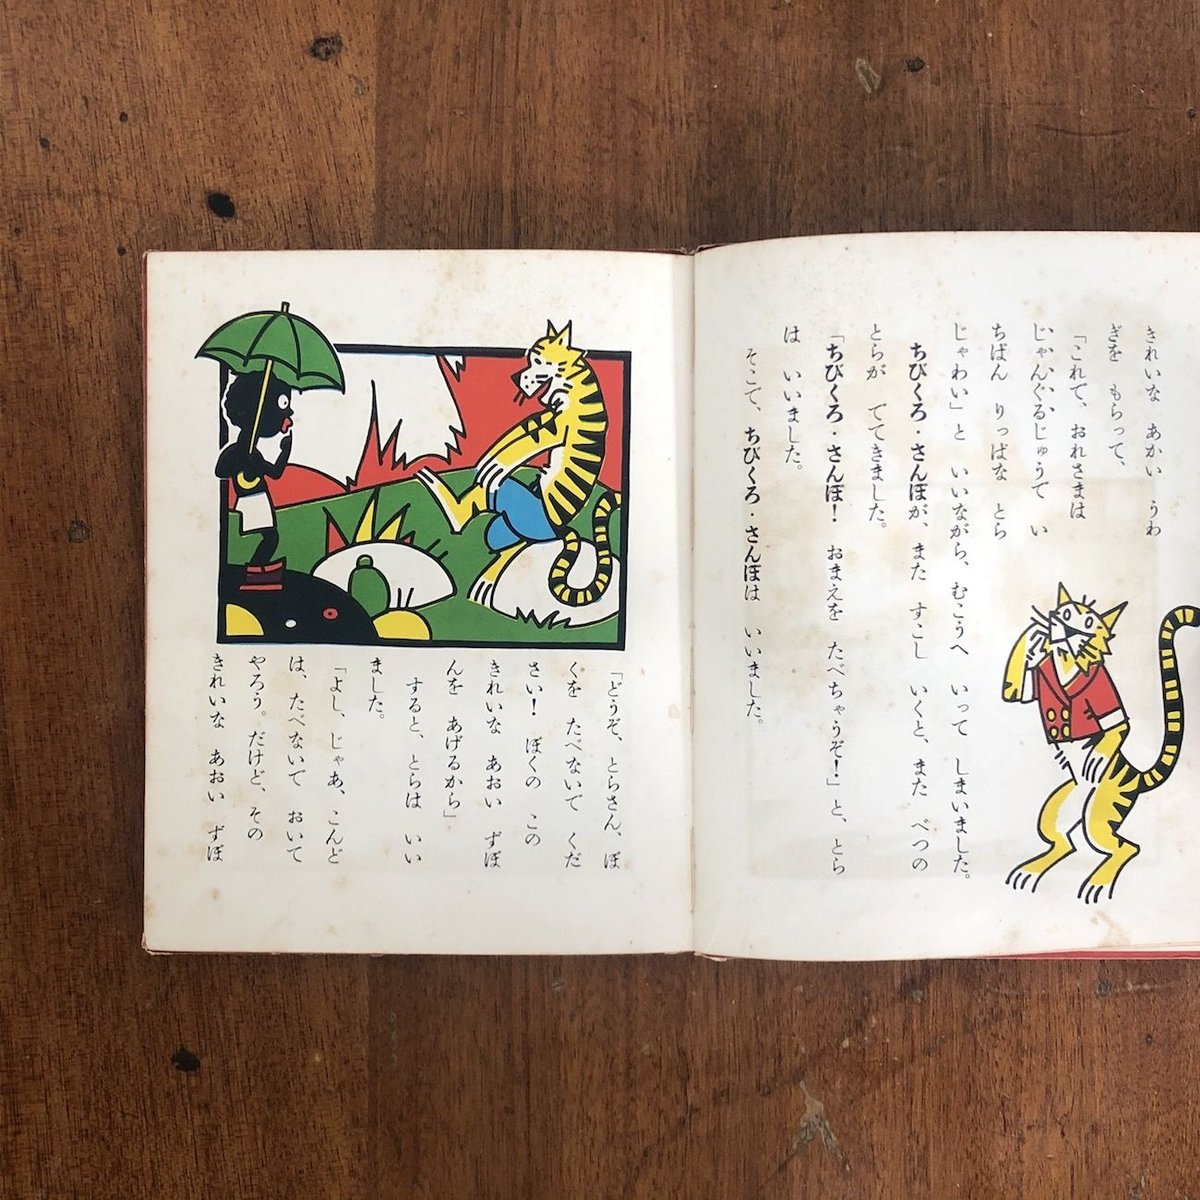 きれいな　あかい　うわ
ぎを　もらって、
「これで、おれさまは
じゃんぐるじゅうで　い
ちばん　りっぱな　とら
じゃわい」と　いいながら、むこうへ　いって　しまいました。
ちびくろ・さんぼが、また　すこし　いくと、また　べつの
とらが　でてきました。
「ちびくろ・さんぼ！　おまえを　たべちゃうぞ！」と、とら
は　いいました。
そこで、ちびくろ・さんぼは　いいました。
「どうぞ、とらさん、ぼ
くを　たべないで　くだ
さい！　ぼくの　この
きれいな　あおい　ずぼ
んを　あげるから」
すると、とらは　いい
ました。
「よし、じゃあ、こんど
は、たべないで　おいて
やろう。だけど、その
きれいな　あおい　ずぼ